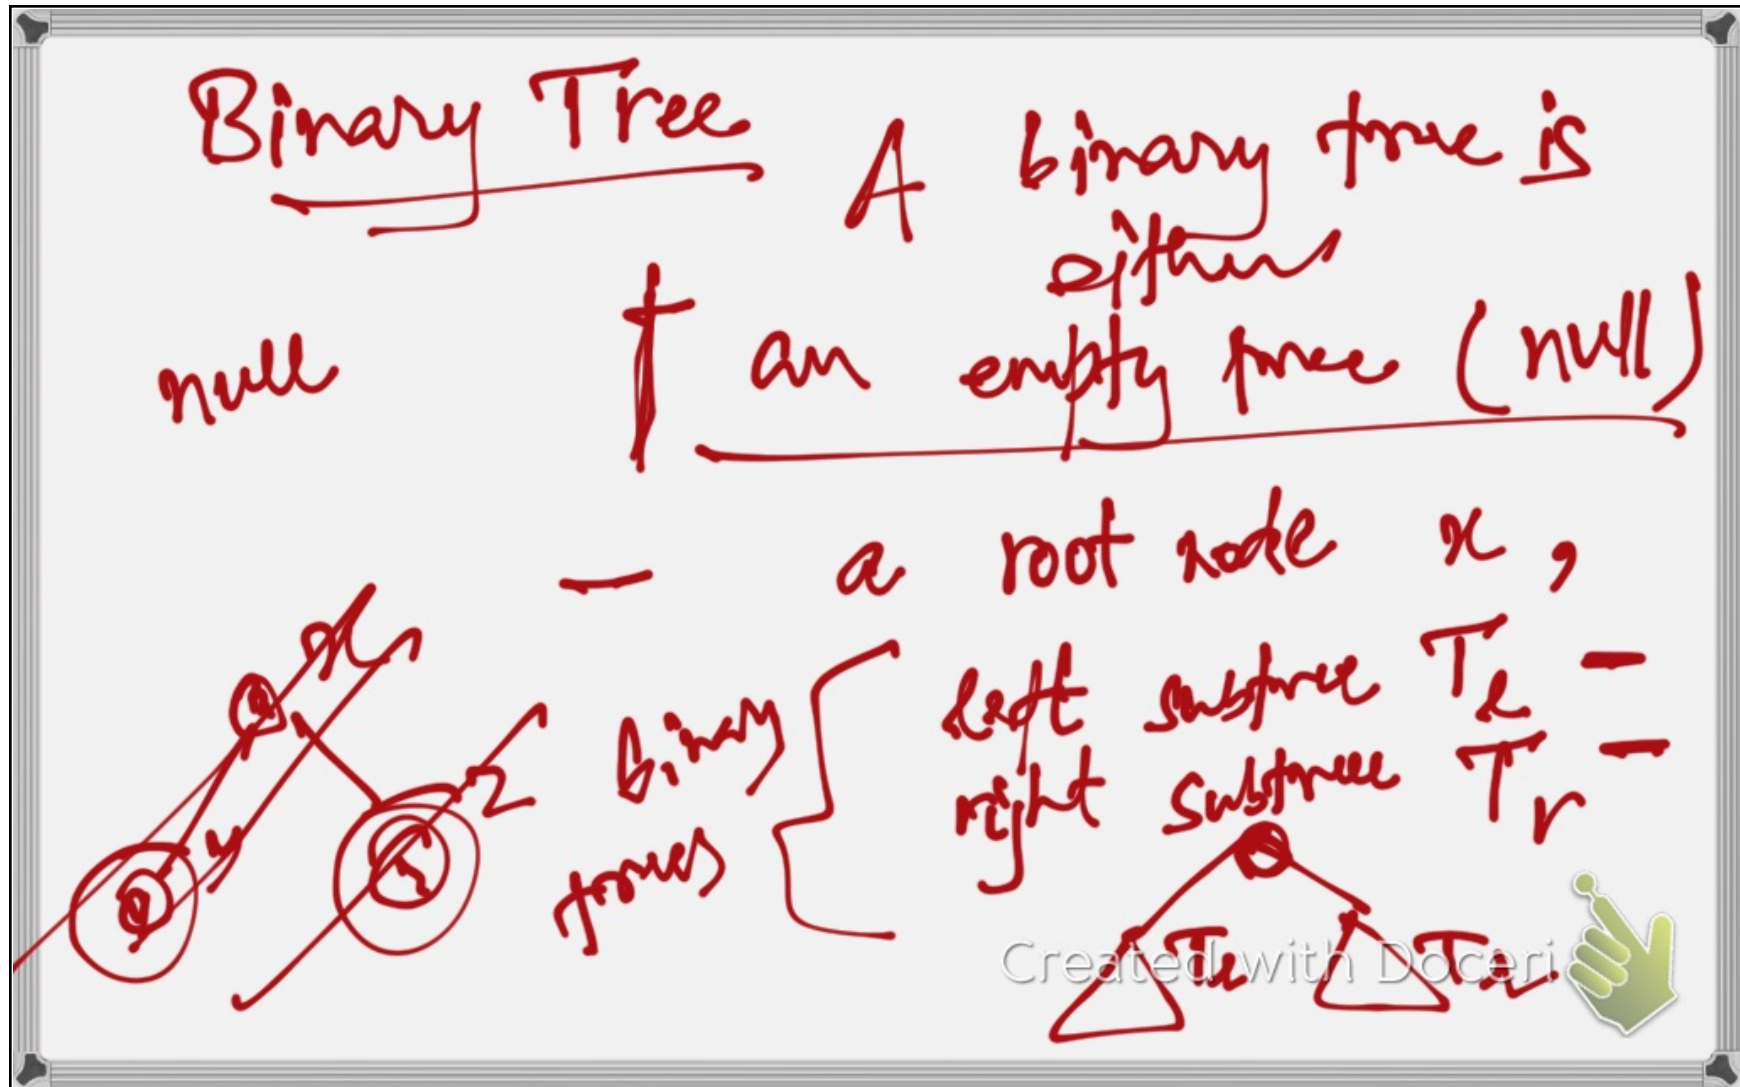 Binary Tree
A binary tree is
either
null
an empty tree (null)
- a root node x,
x
left subtree Tl -
z
binary
right subtree Tr -
y
trees
Tl
Tr
Created with Doceri